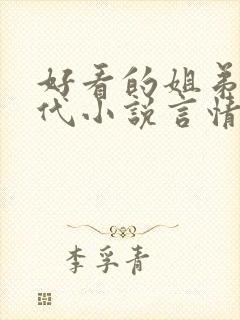 好看的姐弟
代小说言情
李孚青